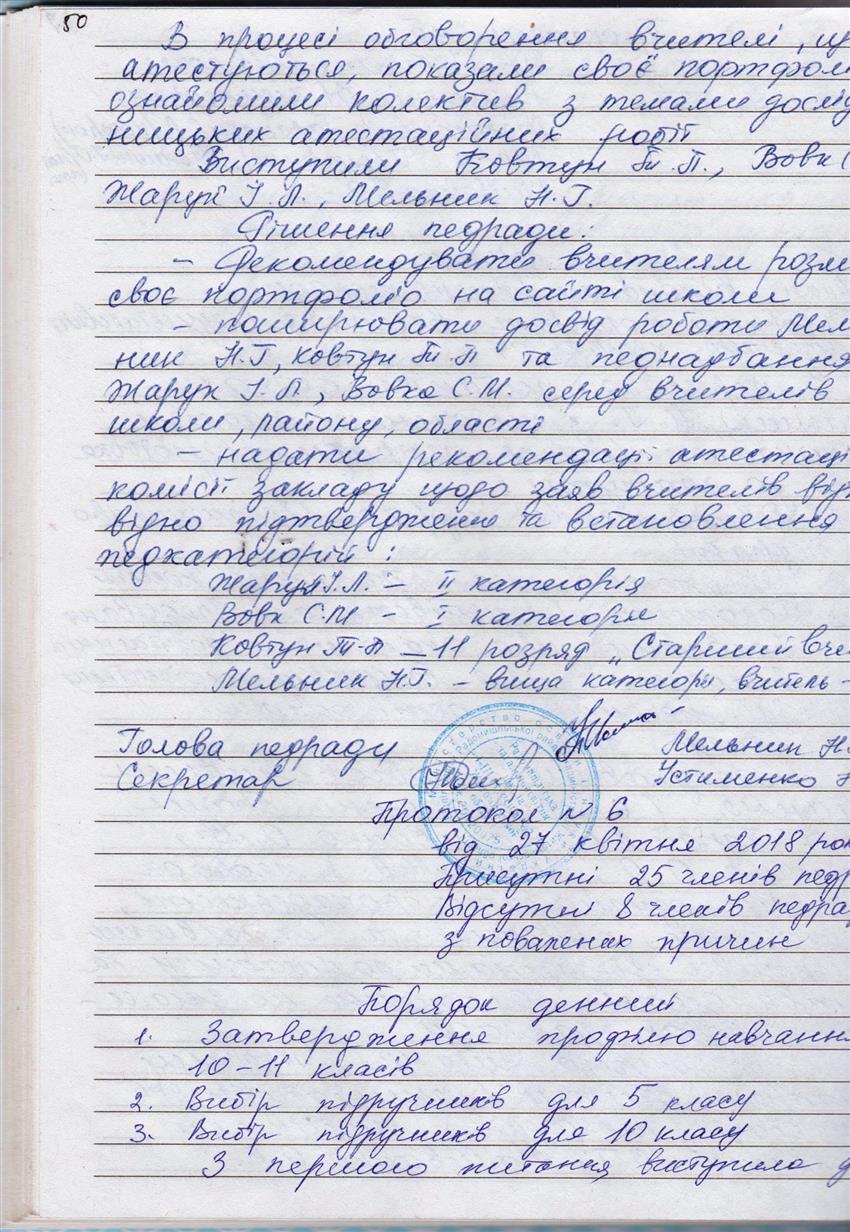 50
В процесі обговорення вчителі, що
атестуються, показали своє портфол
ознайомили колектив з темами дослід
ницьких атестаційних робіт
Виступили Ковтун Т.П., Вовк С
Жарук І.Л., Мельник Н.Г.
Рішення педради:
- Рекомендувати вчителям розм
своє портфоліо на сайті школи
- поширювати досвід роботи Мель
ник Н.Г, Ковтун Т.П та педнадбання
Жарук І.Л, Вовка С.М. серед вчителів
школи, району, області
- надати рекомендації атестаці
комісії закладу щодо заяв вчителів від
відно підтвердження та встановлення
педкатегорій:
Жарук І.Л. - ІІ категорія
Вовк С.М - І категорія
Ковтун Т.П - 11 розряд „Старший вчи
Мельник Н.Г. - вища категорія, вчитель -
Голова педради Мельник Н.
Секретар Устименко Н
Протокол № 6
від 27 квітня 2018 рок
Присутні 25 членів педр
Відсутні 8 членів педрад
з поважних причин
Порядок денний
1. Затвердження профілю навчання
10-11 класів
2. Вибір підручників для 5 класу
3. Вибір підручників для 10 класу
З першого питання виступила д